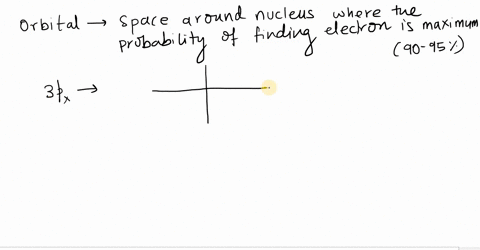 Orbital → Space around nucleus where the
probability of finding electron is maximum
(90-95%)
3px →